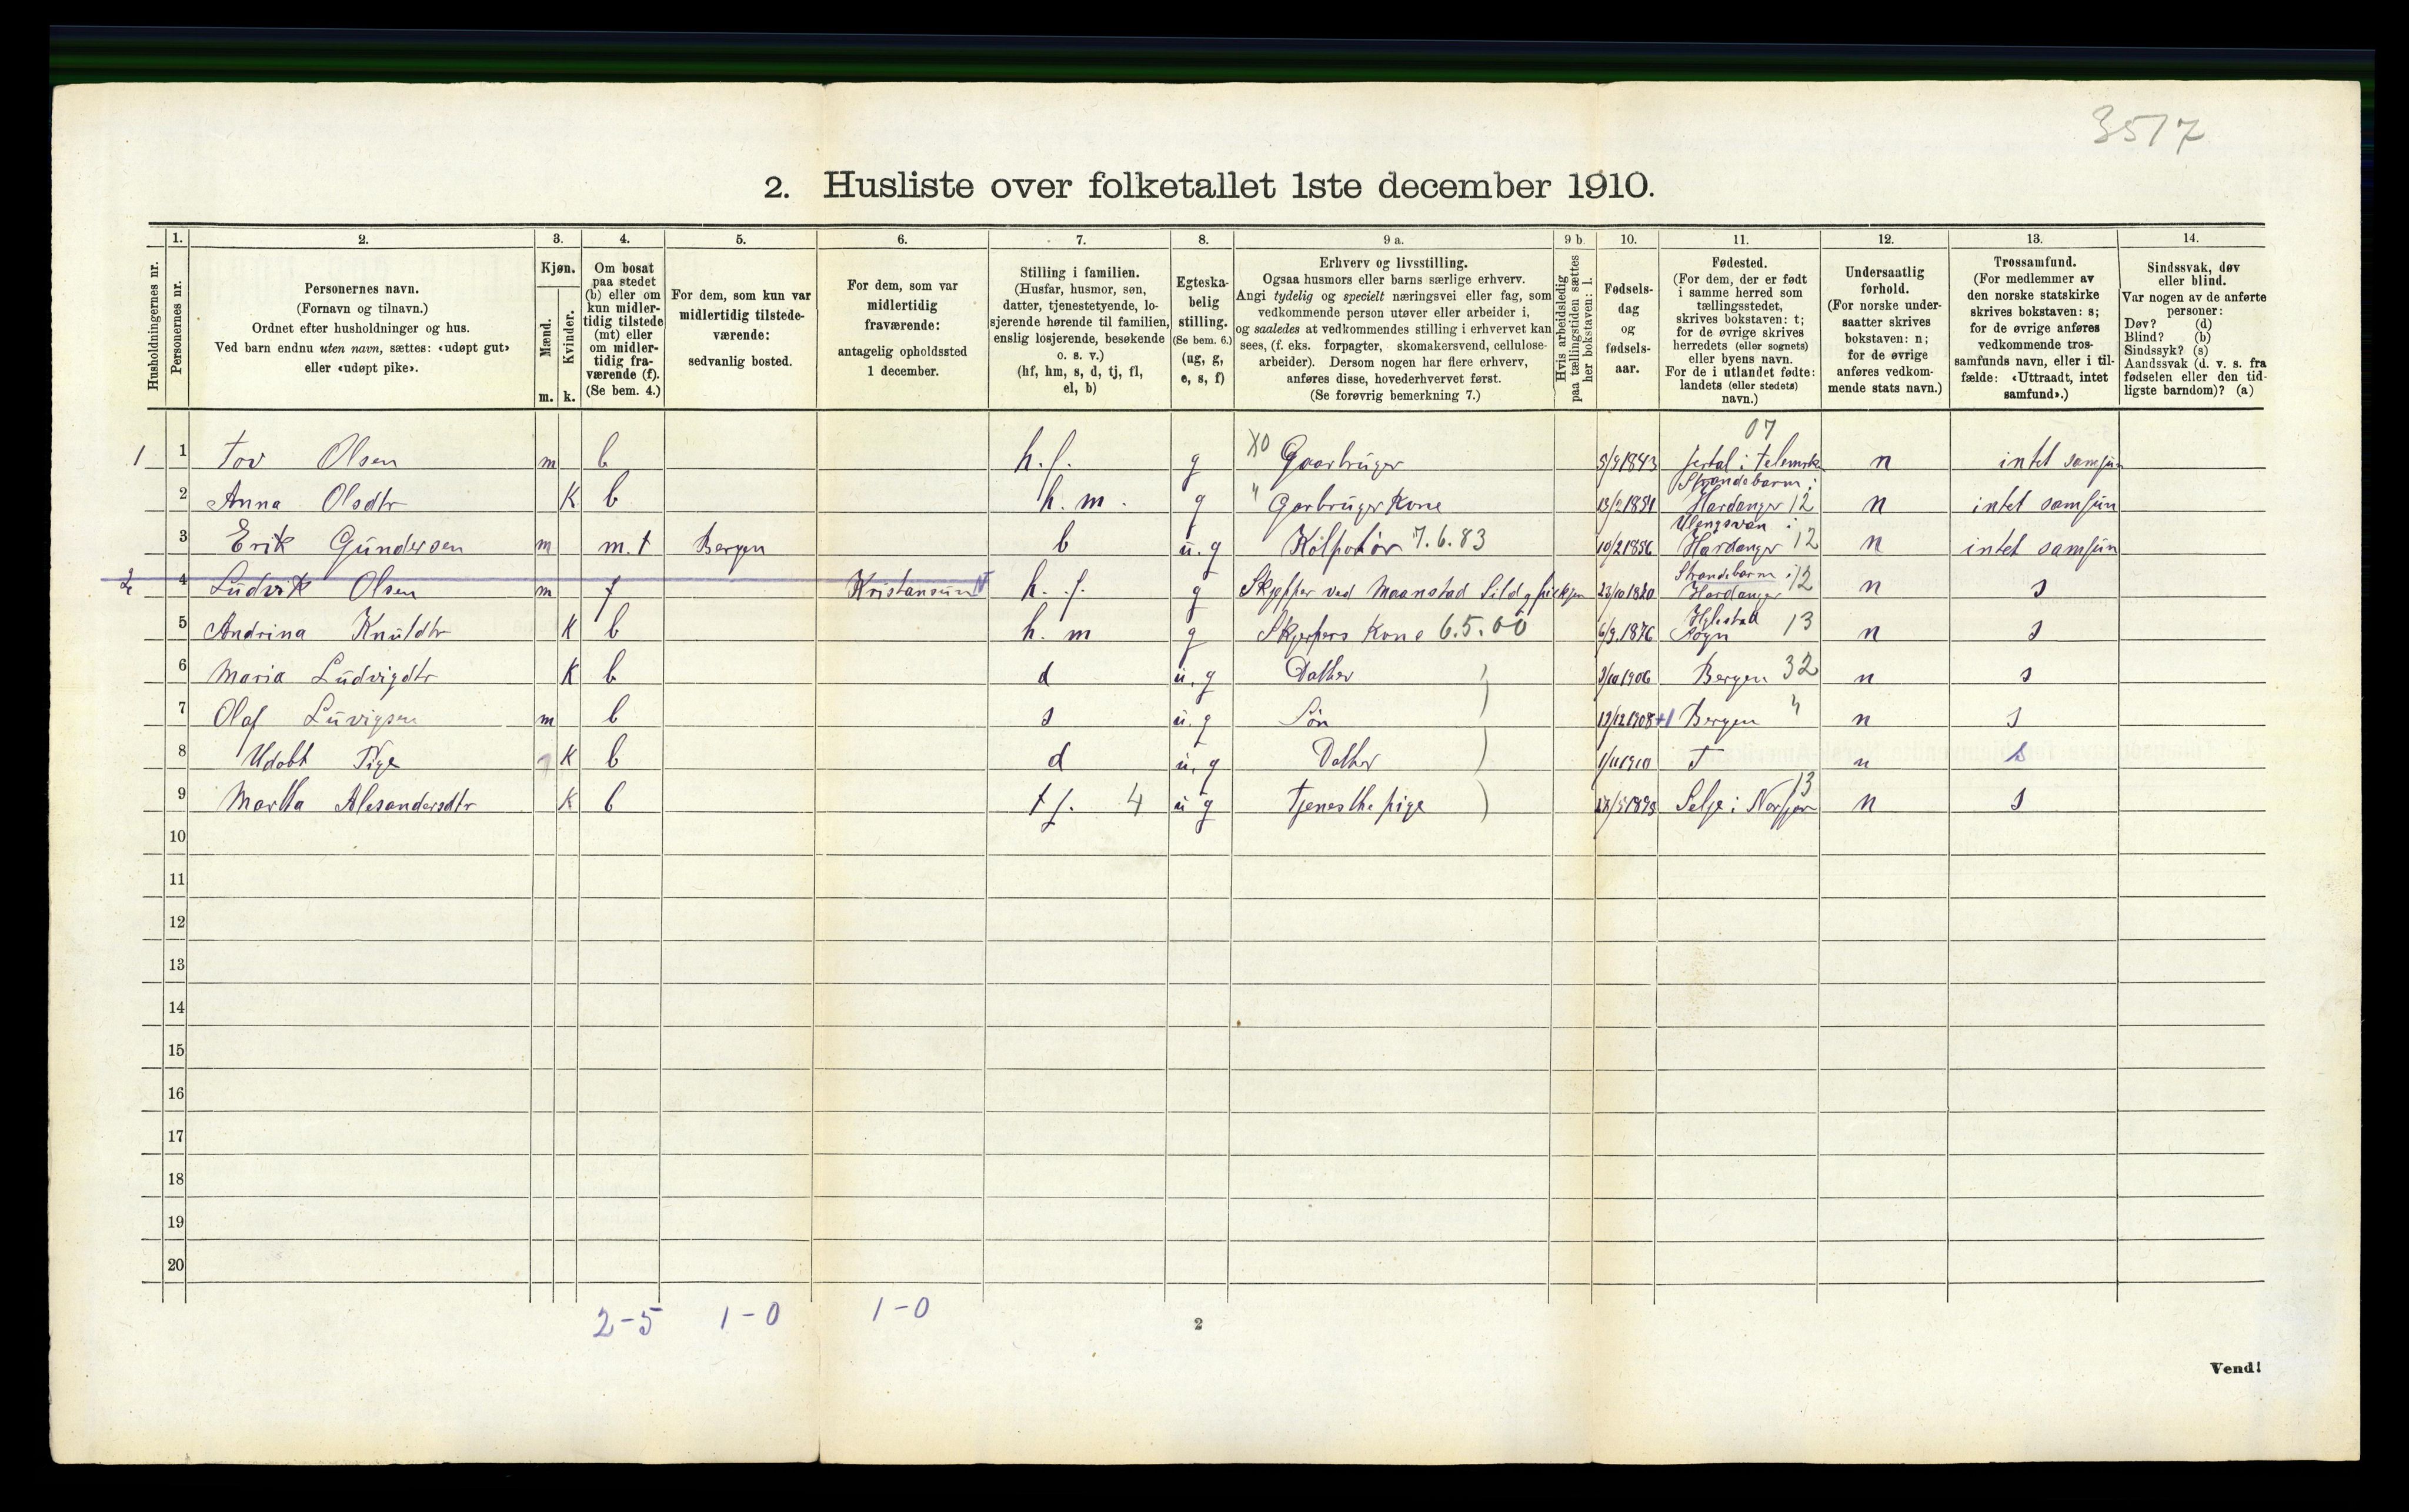 3517
2. Husliste over folketallet 1ste december 1910.
1. 2. 3. 4. 5. 6. 7. 8. 9 a. 9 b. 10. 11. 12. 13. 14.
Husholdningernes nr.
Personernes nr.
Personernes navn.
(Fornavn og tilnavn.)
Ordnet efter husholdninger og hus.
Ved barn endnu uten navn, sættes: «udøpt gut»
eller «udøpt pike».
Kjøn.
Mænd.
Kvinder.
m. k.
Om bosat
paa stedet
(b) eller om
kun midler-
tidig tilstede
(mt) eller
om midler-
tidig fra-
værende (f).
(Se bem. 4.)
For dem, som kun var
midlertidig tilstede-
værende:
sedvanlig bosted.
For dem, som var
midlertidig
fraværende:
antagelig opholdssted
1 december.
Stilling i familien.
(Husfar, husmor, søn,
datter, tjenestetyende, lo-
sjerende hørende til familien,
enslig losjerende, besøkende
o. s. v.)
(hf, hm, s, d, tj, fl,
el, b)
Egteska-
belig
stilling.
(Se bem. 6.)
(ug, g,
e, s, f)
Erhverv og livsstilling.
Ogsaa husmors eller barns særlige erhverv.
Angi tydelig og specielt næringsvei eller fag, som
vedkommende person utøver eller arbeider i,
og saaledes at vedkommendes stilling i erhvervet kan
sees, (f. eks. forpagter, skomakersvend, cellulose-
arbeider). Dersom nogen har flere erhverv,
anføres disse, hovederhvervet først.
(Se forøvrig bemerkning 7.)
Hvis arbeidsledig
paa tællingstiden sættes
her bokstaven: l.
Fødsels-
dag
og
fødsels-
aar.
Fødested.
(For dem, der er født
i samme herred som
tællingsstedet,
skrives bokstaven: t;
for de øvrige skrives
herredets (eller sognets)
eller byens navn.
For de i utlandet fødte:
landets (eller stedets)
navn.)
Undersaatlig
forhold.
(For norske under-
saatter skrives
bokstaven: n;
for de øvrige
anføres vedkom-
mende stats navn.)
Trossamfund.
(For medlemmer av
den norske statskirke
skrives bokstaven: s;
for de øvrige anføres
vedkommende tros-
samfunds navn, eller i til-
fælde: «Uttraadt, intet
samfund».)
Sindssvak, døv
eller blind.
Var nogen av de anførte
personer:
Døv? (d)
Blind? (b)
Sindssyk? (s)
Aandssvak (d. v. s. fra
fødselen eller den tid-
ligste barndom)? (a)
07
1 1 Tov Olsen m b h. f. g X0 Gaarbruger 5/9 1843 i Telemrk n intet samfun
Strandebarm i
2 Anna Olsdtr K b h. m. g " Garbruger Kone 13/2 1851 Hardanger 12 n intet samfun
i
3 Erik Gundersen m m. t Bergen b u. g Kolportør 7.6.83 10/2 1856 Hardanger 12 n intet samfun
Strandebarm i
2 4 Ludvik Olsen m f Kristansun N h. f. g Skjepper ved Maanstad Sild 23/10 1880 Hardanger 12 n s
5 Andrina Knutdtr K b h. m g Skjepers Kone 6.5.00 6/9 1876 Sogn 13 n s
6 Maria Ludvigdtr K b d u. g Datter 3/10 1906 Bergen 32 n s
7 Olaf Luvigsen m b s u. g Søn 19/12 1908 +1 Bergen " n s
8 Udøbt Pige K b d u. g Datter 1/11 1910 T n s
13
9 Martta Alesandersdtr K b t f. 4 u g Tjenesthe pige Selje i Norfjor n s
10
11
12
13
14
15
16
17
18
19
20
2-5 1-0 1-0
2
Vend!